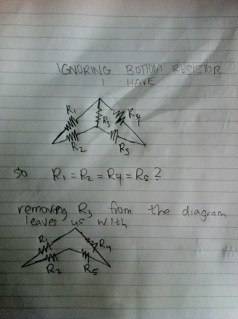 IGNORING BOTTOM RESISTOR
I HAVE
R1
R3
R4
R2
R5
so R1 = R2 = R4 = R5 ?
removing R3 from the diagram
leaves us with
R1
R4
R2
R5